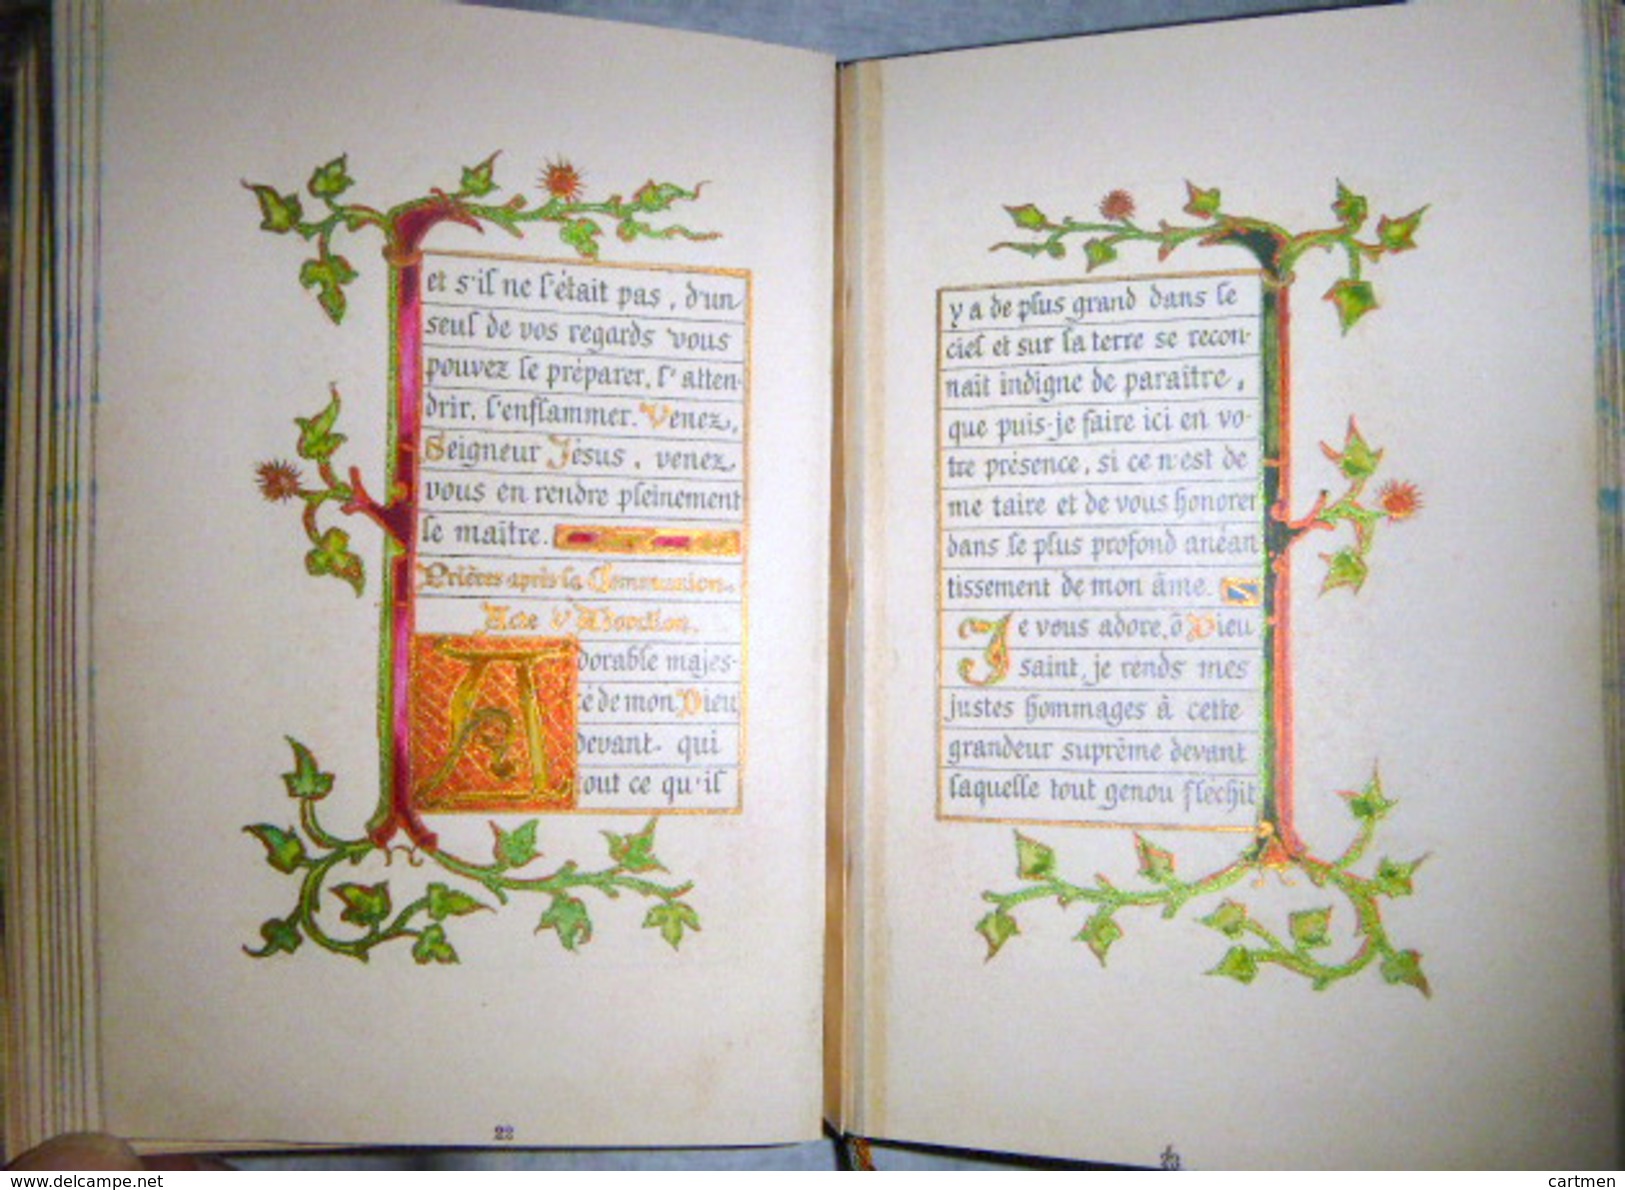 et s'il ne l'était pas, d'un
seul de vos regards vous
pouvez le préparer, l'atten-
drir, l'enflammer. Venez,
Seigneur Jésus, venez
vous en rendre pleinement
le maître.
Prières après la Communion.
Acte d'Adoration.
Adorable majes-
té de mon Dieu
devant qui
tout ce qu'il
22
y a de plus grand dans le
ciel et sur la terre se recon-
nait indigne de paraître,
que puis-je faire ici en vo-
tre présence, si ce n'est de
me taire et de vous honorer
dans le plus profond anéan
tissement de mon âme.
Je vous adore, ô Dieu
saint, je rends mes
justes hommages à cette
grandeur suprême devant
laquelle tout genou fléchit
23
www.delcampe.net
cartmen